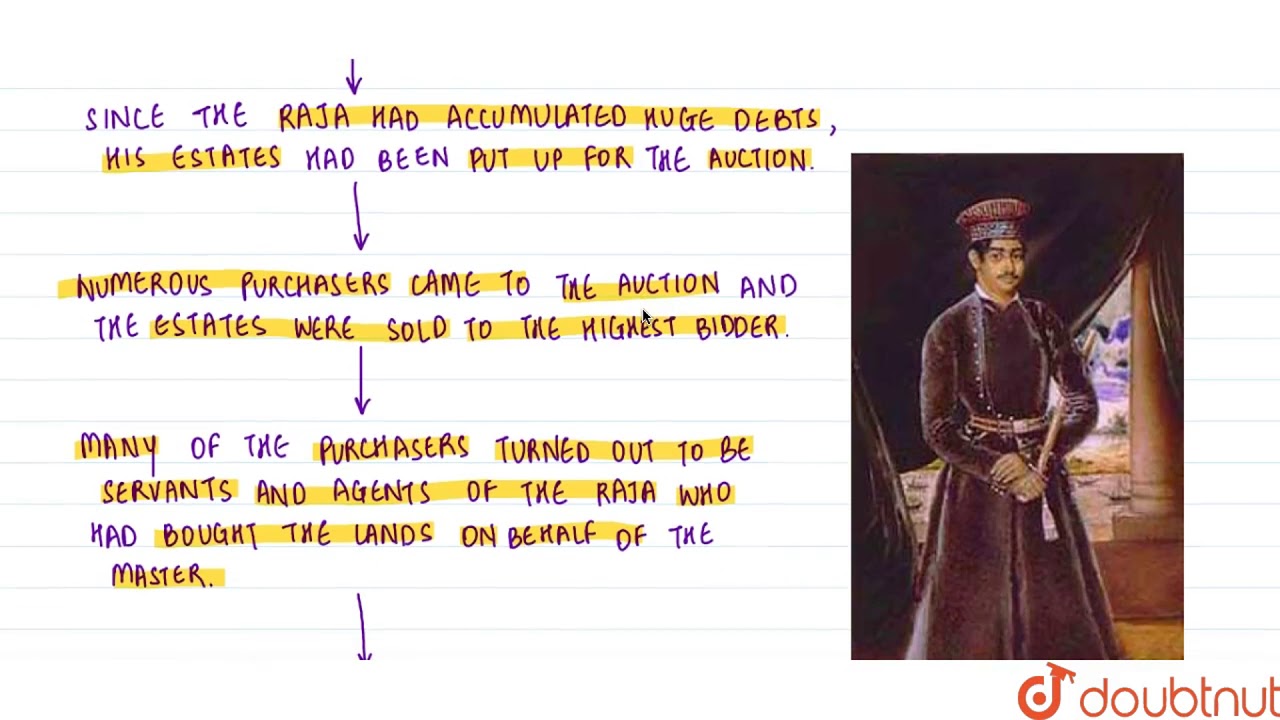 SINCE THE RAJA HAD ACCUMULATED HUGE DEBTS,
HIS ESTATES HAD BEEN PUT UP FOR THE AUCTION.
NUMEROUS PURCHASERS CAME TO THE AUCTION AND
THE ESTATES WERE SOLD TO THE HIGHEST BIDDER.
MANY OF THE PURCHASERS TURNED OUT TO BE
SERVANTS AND AGENTS OF THE RAJA WHO
HAD BOUGHT THE LANDS ON BEHALF OF THE
MASTER.
doubtnut